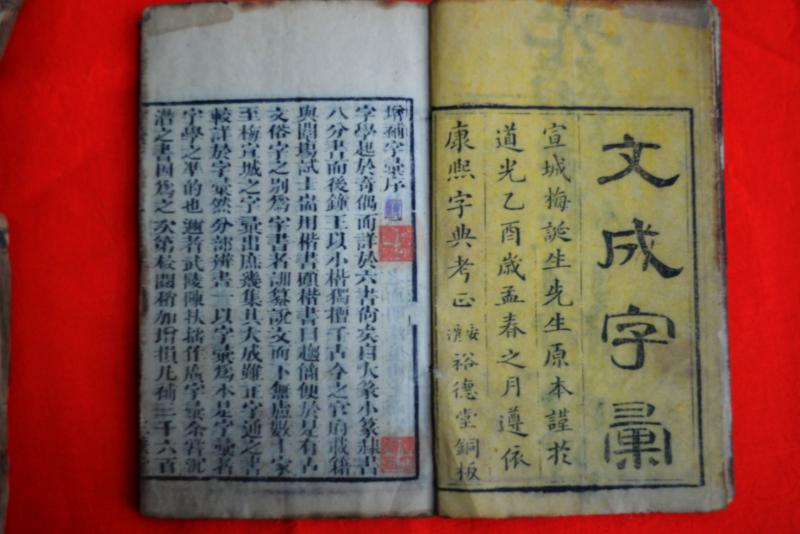 文成字彙
宣城梅誕生先生原本謹於
道光乙酉歲孟春之月遵依
康熙字典考正 裕德堂銅板
增補字彙序
字學起於奇偶而詳於六書尚矣自大篆小篆隸書
八分書而後鍾王以小楷獨擅千古今之官府載籍
與闈場試士咸用楷書顧楷書日趨簡便於是有古
文俗字之別爲字書者訓纂說文而下無慮數十家
至梅宣城之字彙出庶幾集其大成雖正字通之書
較詳於字彙然分部辨書一以字彙爲本是字彙者
字學之準的也邇者武陵陳扶搖作廣字彙余嘗沉
潛之書因爲之次第校閱稍加增損凡補三千六百